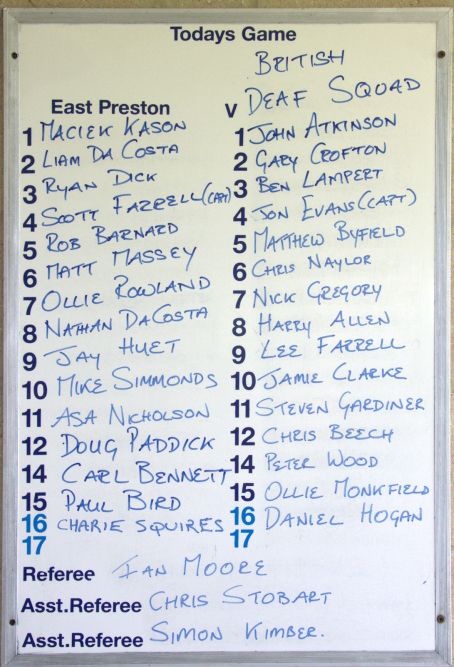 Todays Game
East Preston v BRITISH DEAF SQUAD
1 MACIEK KASON
2 LIAM DA COSTA
3 RYAN DICK
4 SCOTT FARRELL (CAPT)
5 ROB BARNARD
6 MATT MASSEY
7 OLLIE ROWLAND
8 NATHAN DACOSTA
9 JAY HUET
10 MIKE SIMMONDS
11 ASA NICHOLSON
12 DOUG PADDICK
14 CARL BENNETT
15 PAUL BIRD
16 CHARIE SQUIRES
17
1 JOHN ATKINSON
2 GARY CROFTON
3 BEN LAMPERT
4 JON EVANS (CAPT)
5 MATTHEW BYFIELD
6 CHRIS NAYLOR
7 NICK GREGORY
8 HARRY ALLEN
9 LEE FARRELL
10 JAMIE CLARKE
11 STEVEN GARDINER
12 CHRIS BEECH
14 PETER WOOD
15 OLLIE MONKFIELD
16 DANIEL HOGAN
17
Referee IAN MOORE
Asst.Referee CHRIS STOBART
Asst.Referee SIMON KIMBER.